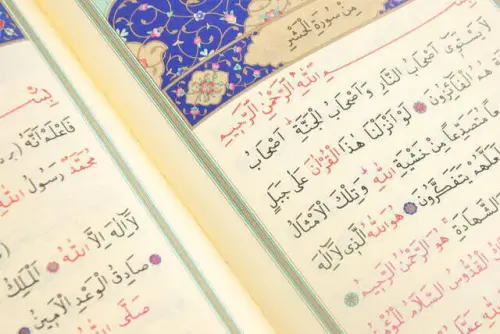 مِنْ سُورَةِ الْحَشْرِ
اللهِ الرَّحْمٰنِ الرَّحِيمِ
لَا يَسْتَوِى اَصْحَابُ النَّارِ وَاَصْحَابُ الْجَنَّةِ اَصْحَابُ
هُمُ الْفَائِزُونَ لَوْ اَنْزَلْنَا هٰذَا الْقُرْاٰنَ عَلٰى جَبَلٍ
مُتَصَدِّعًا مِنْ خَشْيَةِ اللهِ وَتِلْكَ الْاَمْثَالُ
لَعَلَّهُمْ يَتَفَكَّرُونَ هُوَ اللهُ الَّذِى لَا اِلٰهَ
وَالشَّهَادَةِ هُوَ الرَّحْمٰنُ الرَّحِيمُ
الْقُدُّوسُ السَّلَامُ
فَاعْلَمْ اَنَّهُ
مُحَمَّدٌ رَسُولُ اللهِ
لَا اِلٰهَ اِلَّا اللهُ الْمَلِكُ
صَادِقُ الْوَعْدِ الْاَمِينُ
صَلَّى اللهُ